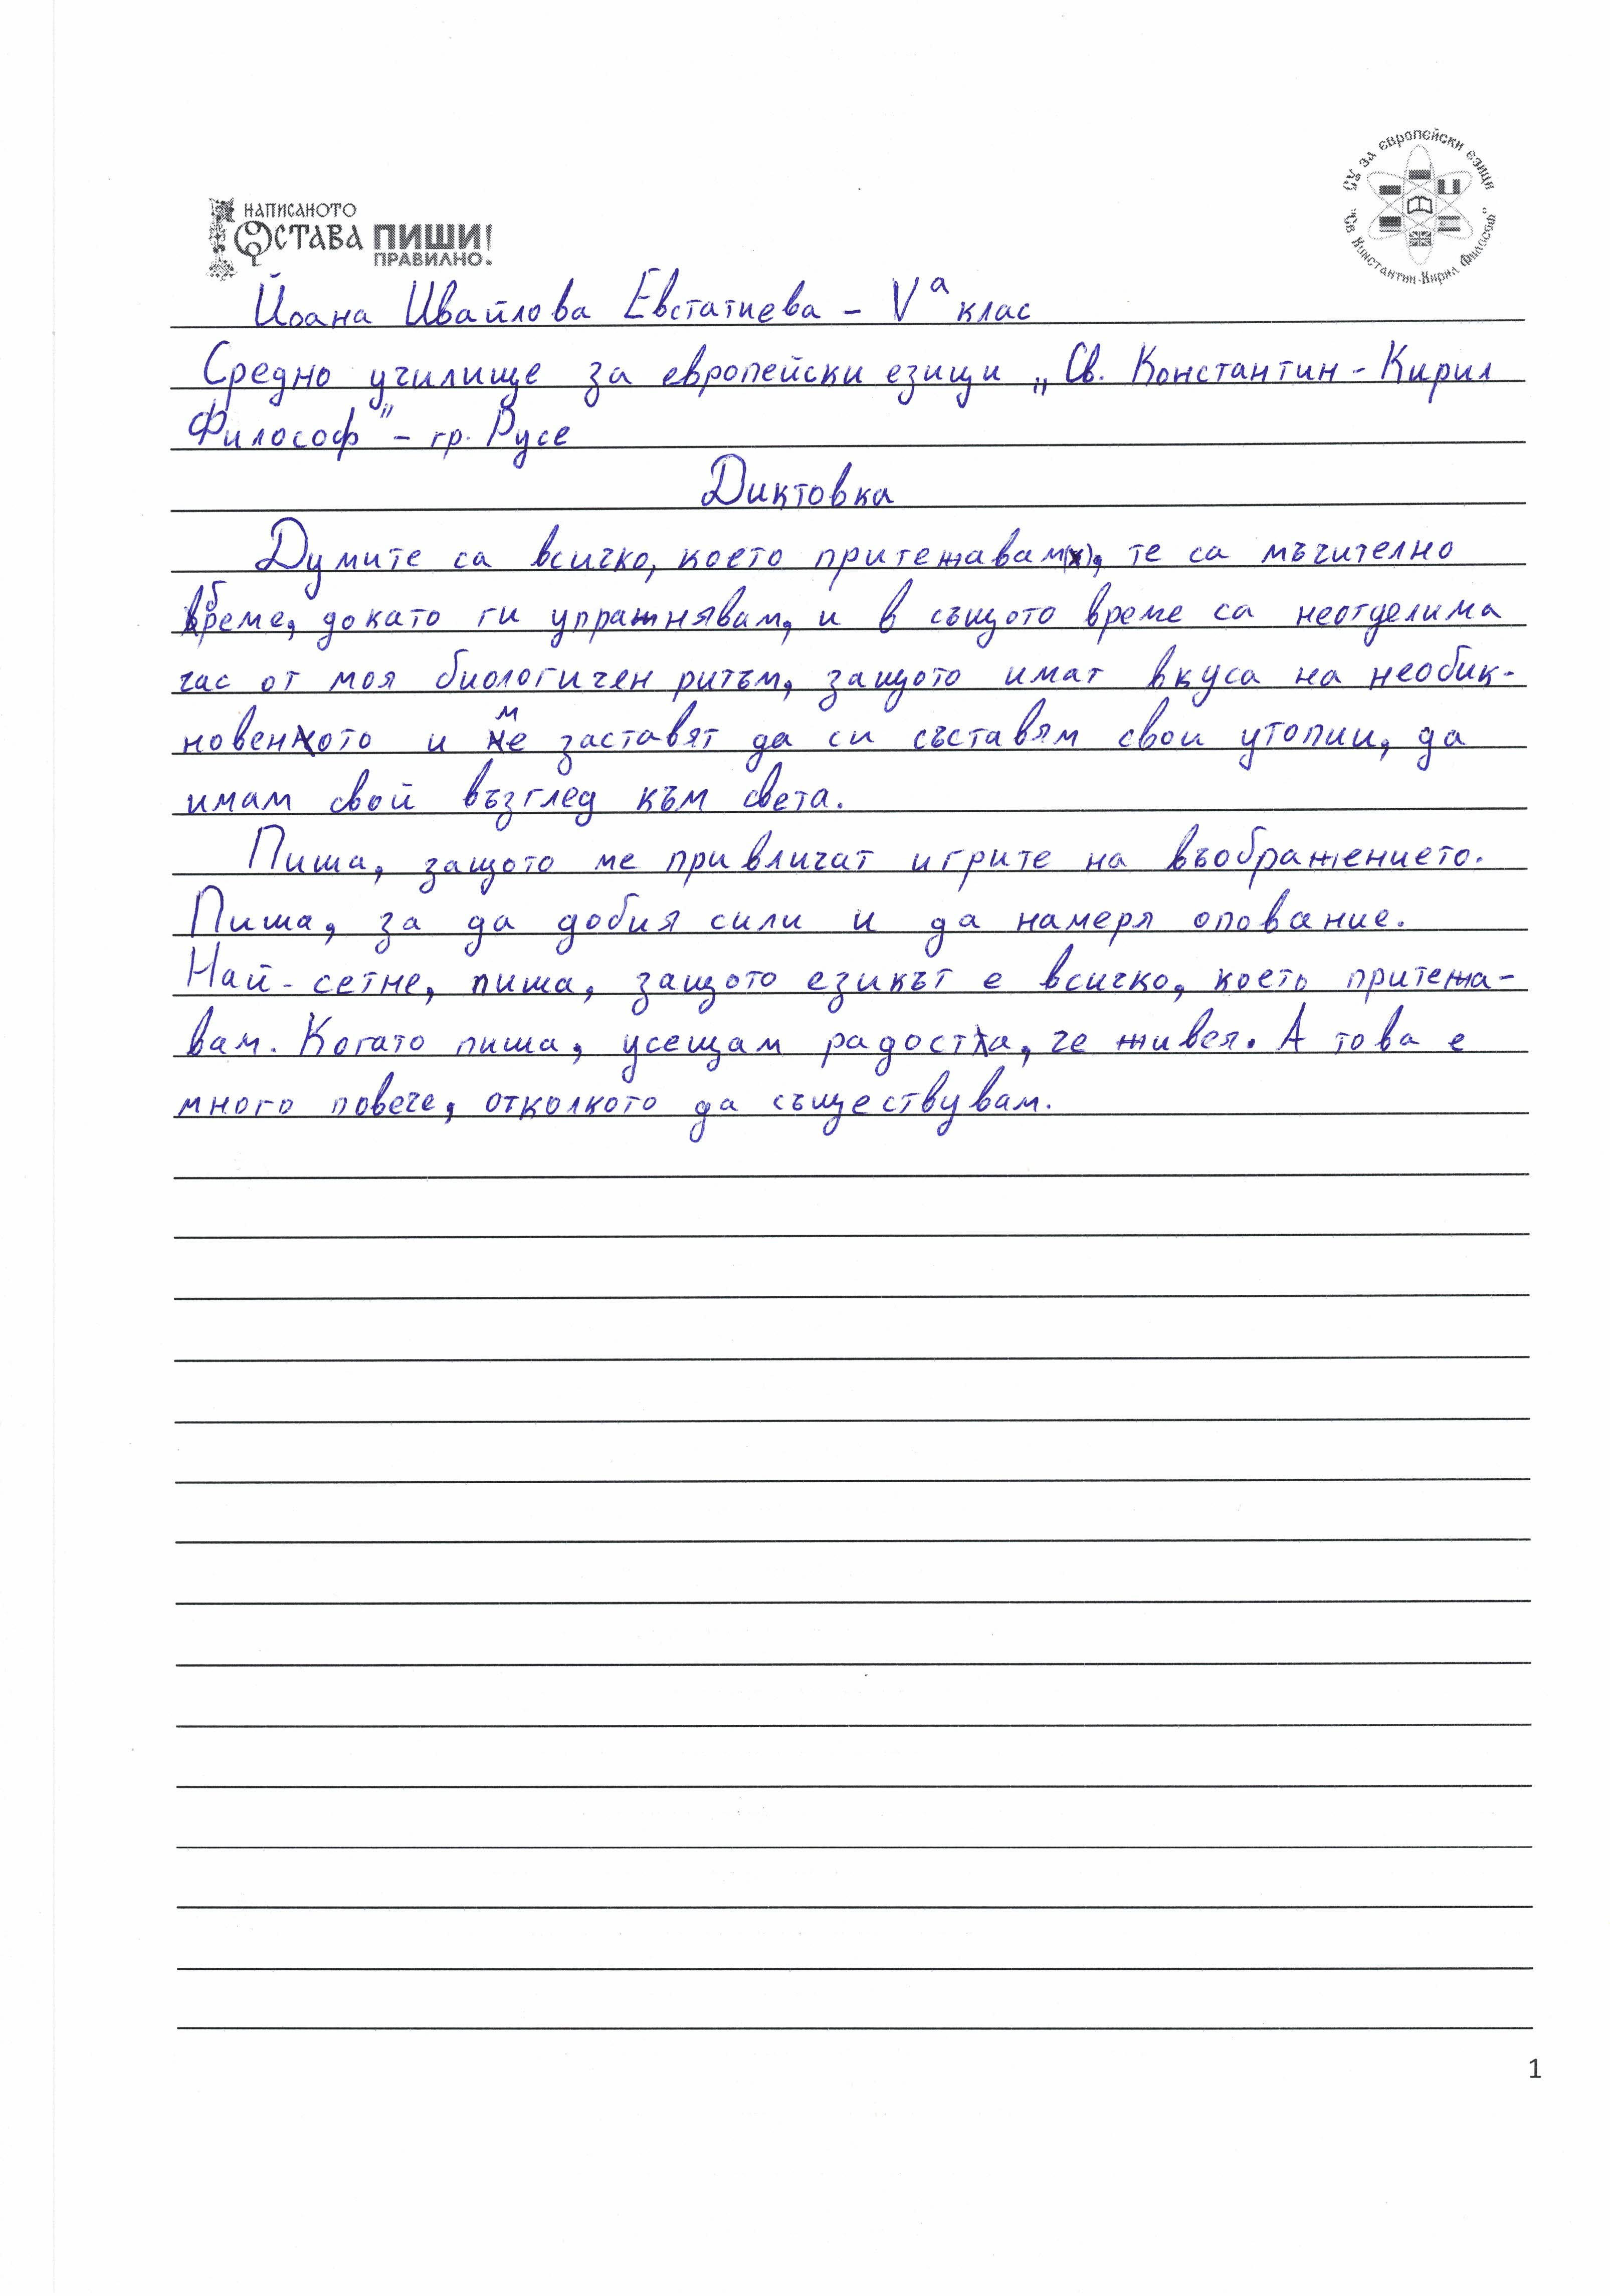 НАПИСАНОТО
ОСТАВА ПИШИ!
ПРАВИЛНО.
СУ за европейски езици
"Св. Константин-Кирил Философ"
Йоана Ивайлова Евстатиева – Vа клас
Средно училище за европейски езици „Св. Константин - Кирил
Философ" – гр. Русе
Диктовка
Думите са всичко, което притежавам, те са мъчително
бреме, докато ги упражнявам, и в същото време са неотделима
час от моя биологичен ритъм, защото имат вкуса на необик-
новеното и ме заставят да си съставям свои утопии, да
имам свой възглед към света.
Пиша, защото ме привличат игрите на въображението.
Пиша, за да добия сили и да намеря опование.
Най-сетне, пиша, защото езикът е всичко, което притежа-
вам. Когато пиша, усещам радоста, че живея. А това е
много повече, отколкото да съществувам.
1